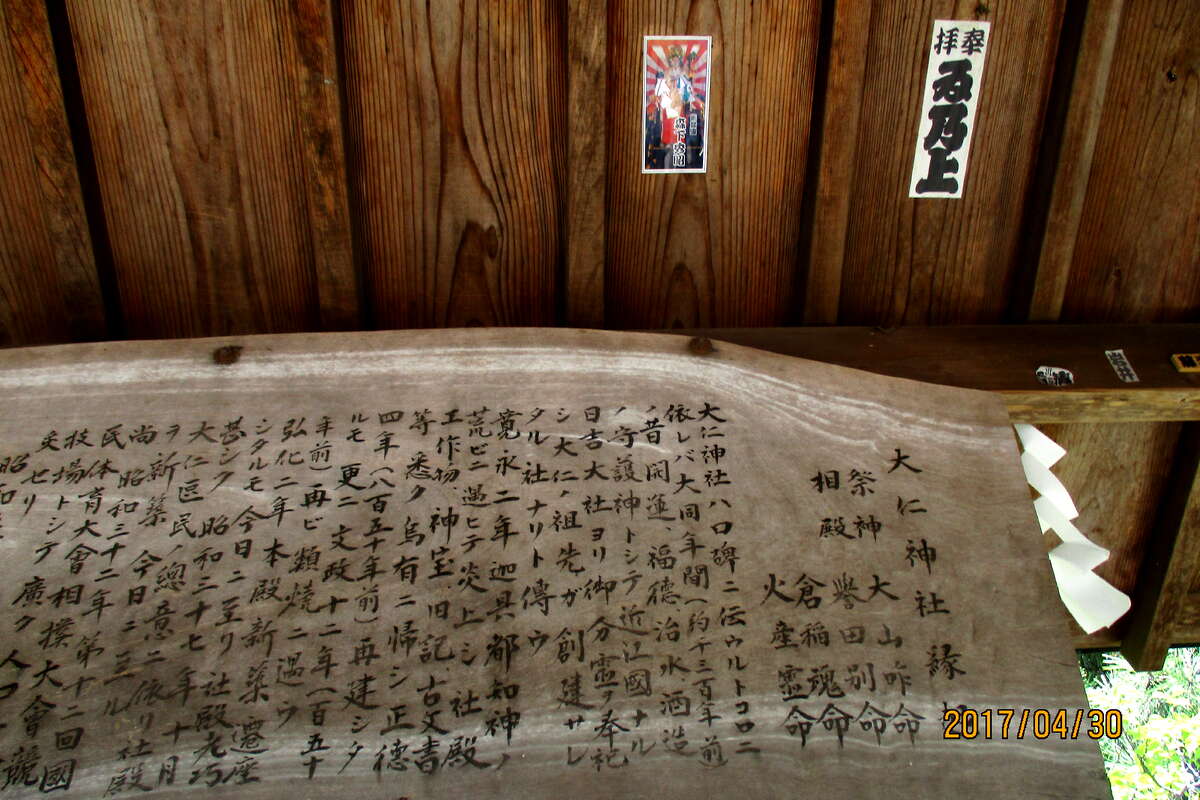 奉拝
ゐ乃上
森下
岩井
大仁神社縁
祭神 大山咋命
誉田別命
相殿 倉稲魂命
火産霊命
大仁神社ハ口碑ニ伝ウルトコロニ
依レバ大同年間(約千三百年前)
ノ昔開運、福德、治水酒造
ノ守護神トシテ近江國ナル
日吉大社ヨリ御分霊ヲ奉祀
シ大仁ノ祖先ガ創建サレ
タル社ナリト傳ウ
寛永二年迦具都知神ノ
荒ビニ遇ヒテ炎上シ社殿
工作物、神宝、旧記古文書
等悉ク烏有ニ帰シ正德
四年(八百五十年前)再建シタ
ルモ更ニ文政十二年(百五十
年前)再ビ類焼ニ遇ウ
弘化二年本殿新築遷座
シタルモ今日ニ至リ社殿老巧
甚シク昭和三十七年十月
大仁區民ノ總意ニ依リ社殿
ヲ新築今日ニ至ル
尚昭和三十二年第十二回國
民体育大會相撲大會競
技場トシテ廣ク人口
昭和
2017/04/30